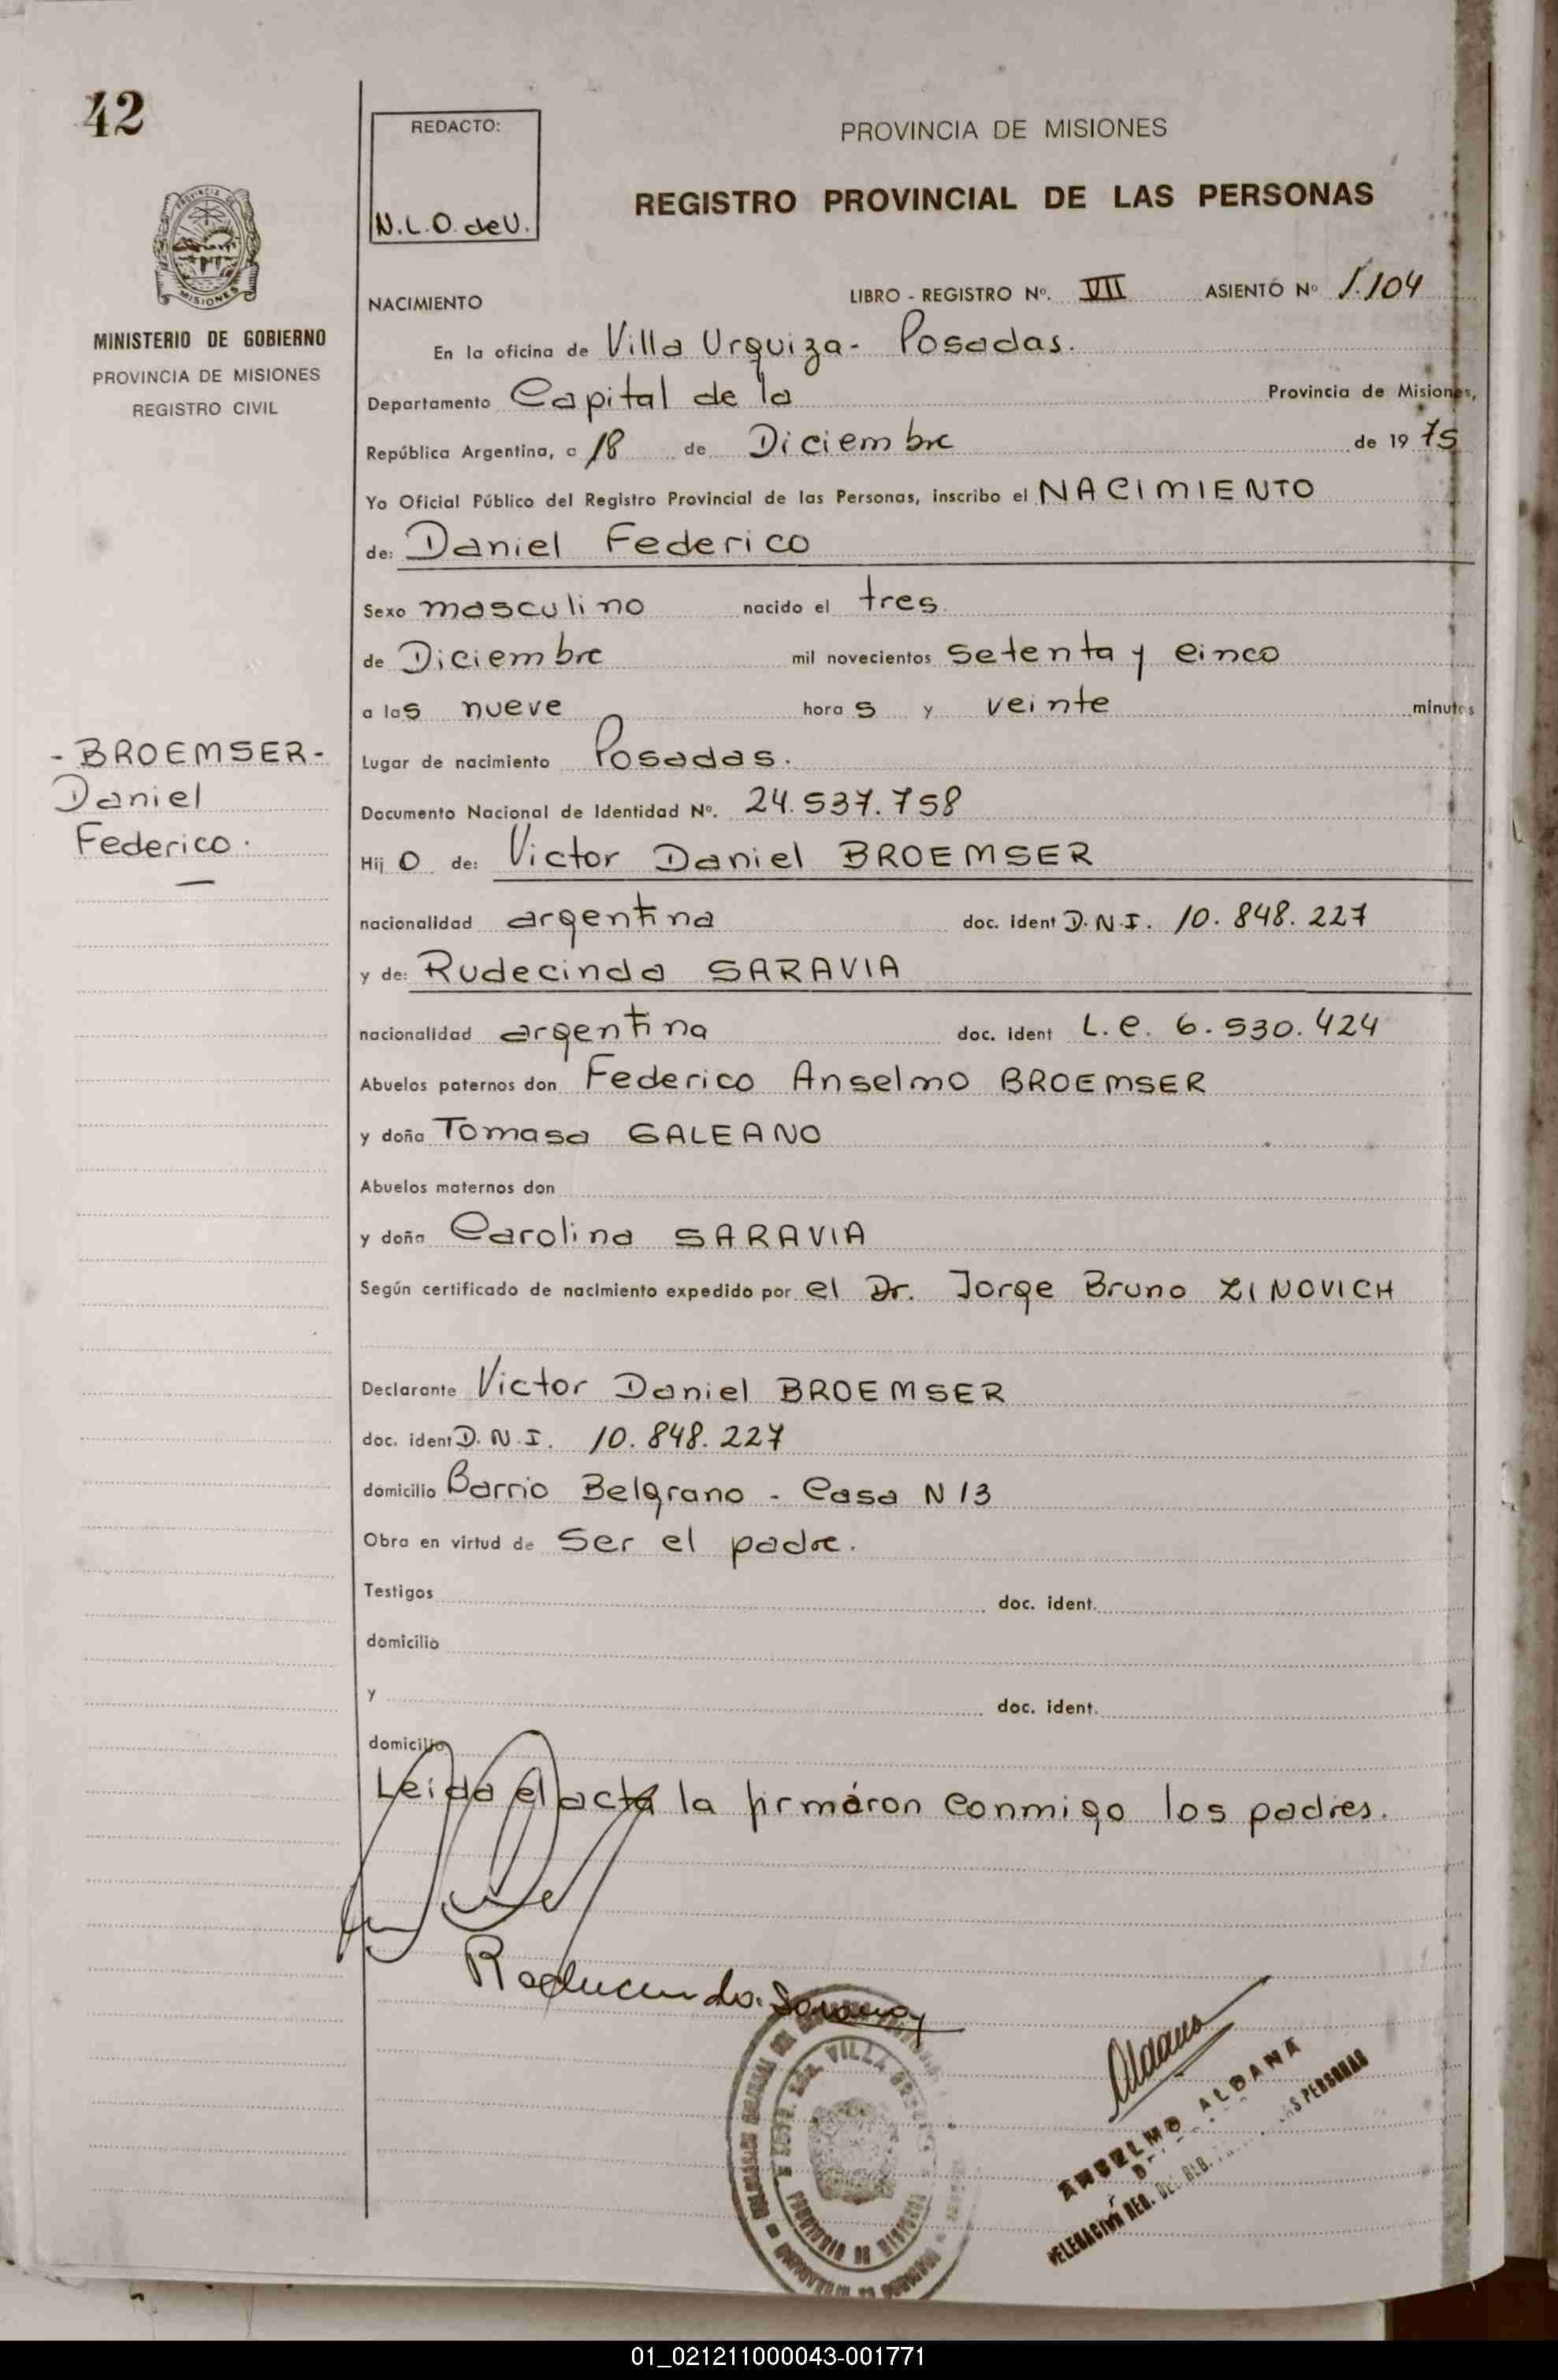 42
REDACTO:
N.L.O. de U.
PROVINCIA DE MISIONES
REGISTRO PROVINCIAL DE LAS PERSONAS
PROVINCIA DE
MISIONES
MINISTERIO DE GOBIERNO
PROVINCIA DE MISIONES
REGISTRO CIVIL
NACIMIENTO LIBRO - REGISTRO Nº. VII ASIENTO Nº 1.104
En la oficina de Villa Urquiza - Posadas.
Departamento Capital de la Provincia de Misiones,
República Argentina, a 18 de Diciembre de 19 75
Yo Oficial Público del Registro Provincial de las Personas, inscribo el NACIMIENTO
de: Daniel Federico
Sexo masculino nacido el tres
de Diciembre mil novecientos setenta y cinco
a las nueve horas y veinte minutos
- BROEMSER -
Daniel
Federico.
Lugar de nacimiento Posadas.
Documento Nacional de Identidad Nº. 24.537.758
Hijo de: Victor Daniel BROEMSER
nacionalidad argentina doc. ident D.N.I. 10.848.227
y de: Rudecinda SARAVIA
nacionalidad argentina doc. ident L.C. 6.530.424
Abuelos paternos don Federico Anselmo BROEMSER
y doña Tomasa GALEANO
Abuelos maternos don
y doña Carolina SARAVIA
Según certificado de nacimiento expedido por el Dr. Jorge Bruno ZINOVICH
Declarante Victor Daniel BROEMSER
doc. ident D.N.I. 10.848.227
domicilio Barrio Belgrano - Casa N 13
Obra en virtud de ser el padre.
Testigos doc. ident.
domicilio
y doc. ident.
domicilio
Leída el acta la firmáron conmigo los padres.
Aldana
ANSELMO ALDANA
DELEGACION REG. DEL REG. PERSONAS
VILLA
PROVINCIA DE MISIONES
01_021211000043-001771